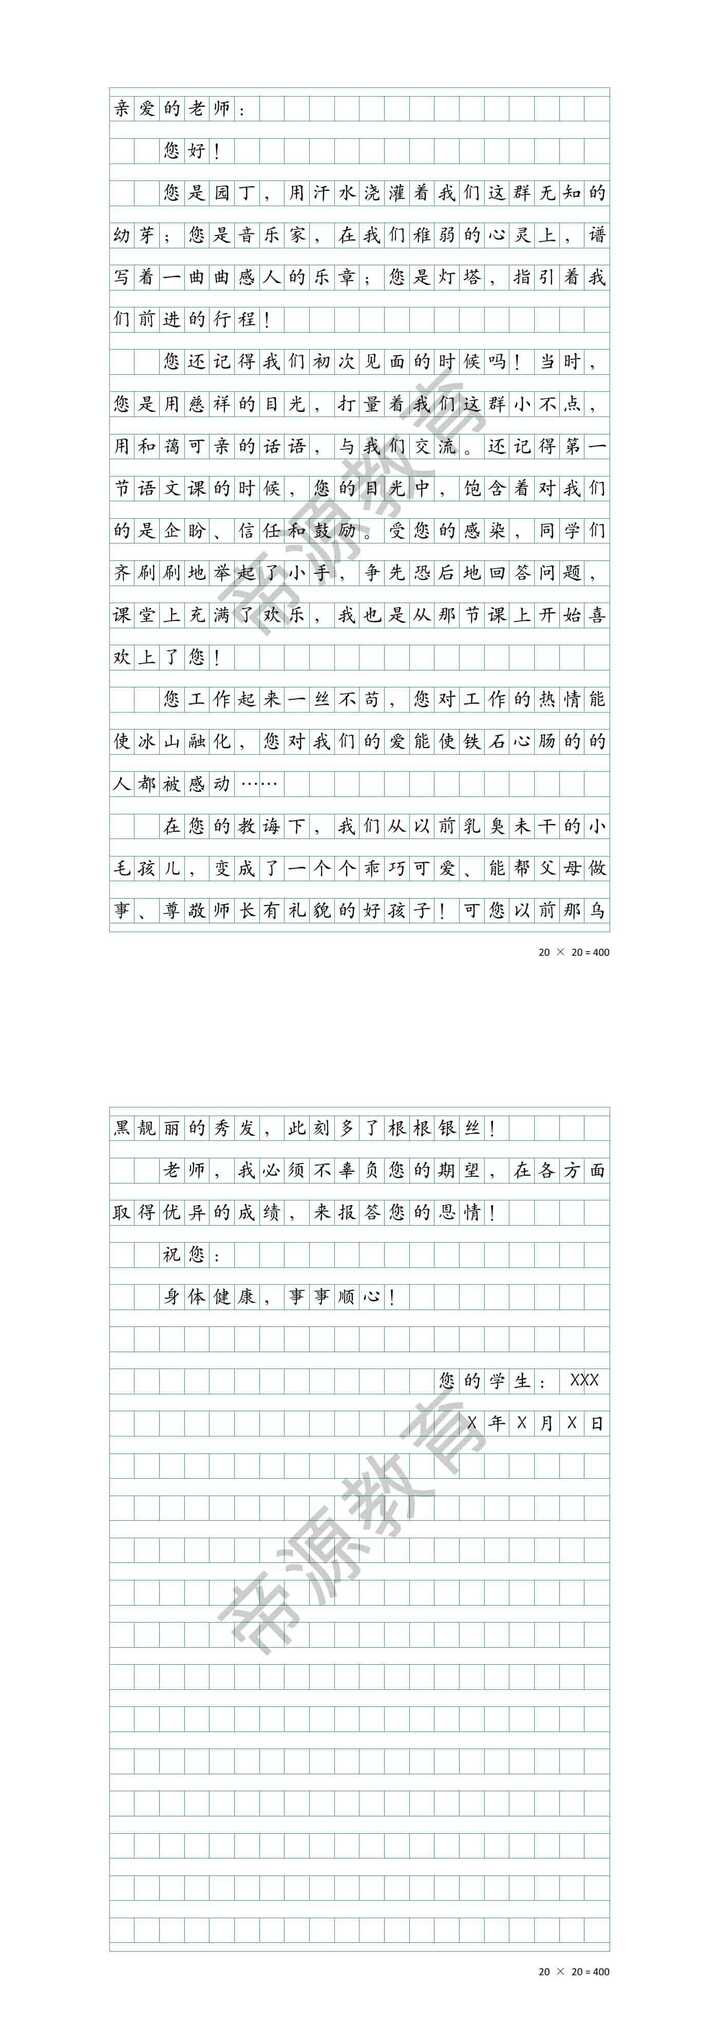 亲爱的老师：
您好！
您是园丁，用汗水浇灌着我们这群无知的
幼芽；您是音乐家，在我们稚弱的心灵上，谱
写着一曲曲感人的乐章；您是灯塔，指引着我
们前进的行程！
您还记得我们初次见面的时候吗！当时，
您是用慈祥的目光，打量着我们这群小不点，
用和蔼可亲的话语，与我们交流。还记得第一
节语文课的时候，您的目光中，饱含着对我们
的是企盼、信任和鼓励。受您的感染，同学们
齐刷刷地举起了小手，争先恐后地回答问题，
课堂上充满了欢乐，我也是从那节课上开始喜
欢上了您！
您工作起来一丝不苟，您对工作的热情能
使冰山融化，您对我们的爱能使铁石心肠的的
人都被感动……
在您的教诲下，我们从以前乳臭未干的小
毛孩儿，变成了一个个乖巧可爱、能帮父母做
事、尊敬师长有礼貌的好孩子！可您以前那乌
20 × 20＝400
黑靓丽的秀发，此刻多了根根银丝！
老师，我必须不辜负您的期望，在各方面
取得优异的成绩，来报答您的恩情！
祝您：
身体健康，事事顺心！
您的学生：XXX
X年X月X日
20 × 20＝400
帝源教育
帝源教育